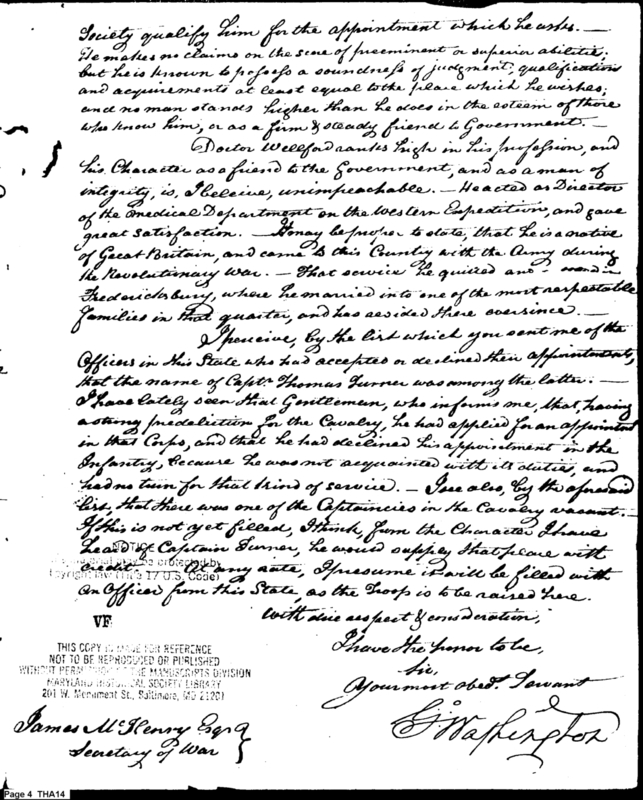 Society qualify him for the appointment which he asks. —
He makes no claims on the score of preeminent or superior abilities;
but he is known to possess a soundness of judgment, qualification
and acquirements at least equal to the place which he wishes;
and no man stands higher than he does in the esteem of those
who know him, or as a firm & steady friend to Government. —
Doctor Wellford ranks high in his profession, and
his Character as a friend to the Government, and as a man of
integrity, is, I beleive, unimpeachable. — He acted as Director
of the Medical Department on the Western Expedition, and gave
great satisfaction. — It may be proper to state, that he is a native
of Great Britain, and came to this Country with the Army during
the Revolutionary War. — That service he quitted and
Fredericksburg, where he married into one of the most respectable
families in that quarter, and has resided there ever since. —
I perceive, by the list which you sent me of the
Officers in this State who had accepted or declined their appointments,
that the name of Captn. Thomas Turner was among the latter. —
I have lately seen that Gentleman, who informs me, that, having
a strong predeliction for the Cavalry, he had applied for an appointmt
in that Corps, and that he had declined his appointment in the
Infantry, because he was not acquainted with its duties, and
had no turn for that kind of service. — I see also, by the aforesaid
list, that there was one of the Captaincies in the Cavalry vacant. —
If this is not yet filled, I think, from the Character I have
heard of Captain Turner, he would supply that place with
credit. — At any rate, I presume it will be filled with
an Officer from this State, as the Troop is to be raised here.
NOTICE
protected by
copyright law (Title 17 U.S. Code)
With due respect & consideration,
VF
I have the honor to be,
THIS COPY IS MADE FOR REFERENCE
NOT TO BE REPRODUCED OR PUBLISHED
WITHOUT PERMISSION OF THE MANUSCRIPTS DIVISION
MARYLAND HISTORICAL SOCIETY LIBRARY
201 W. Monument St., Baltimore, MD 21201
Sir,
Your most obedt. Servant
Go Washington
James McHenry Esqr
Secretary of War
Page 4 THA14